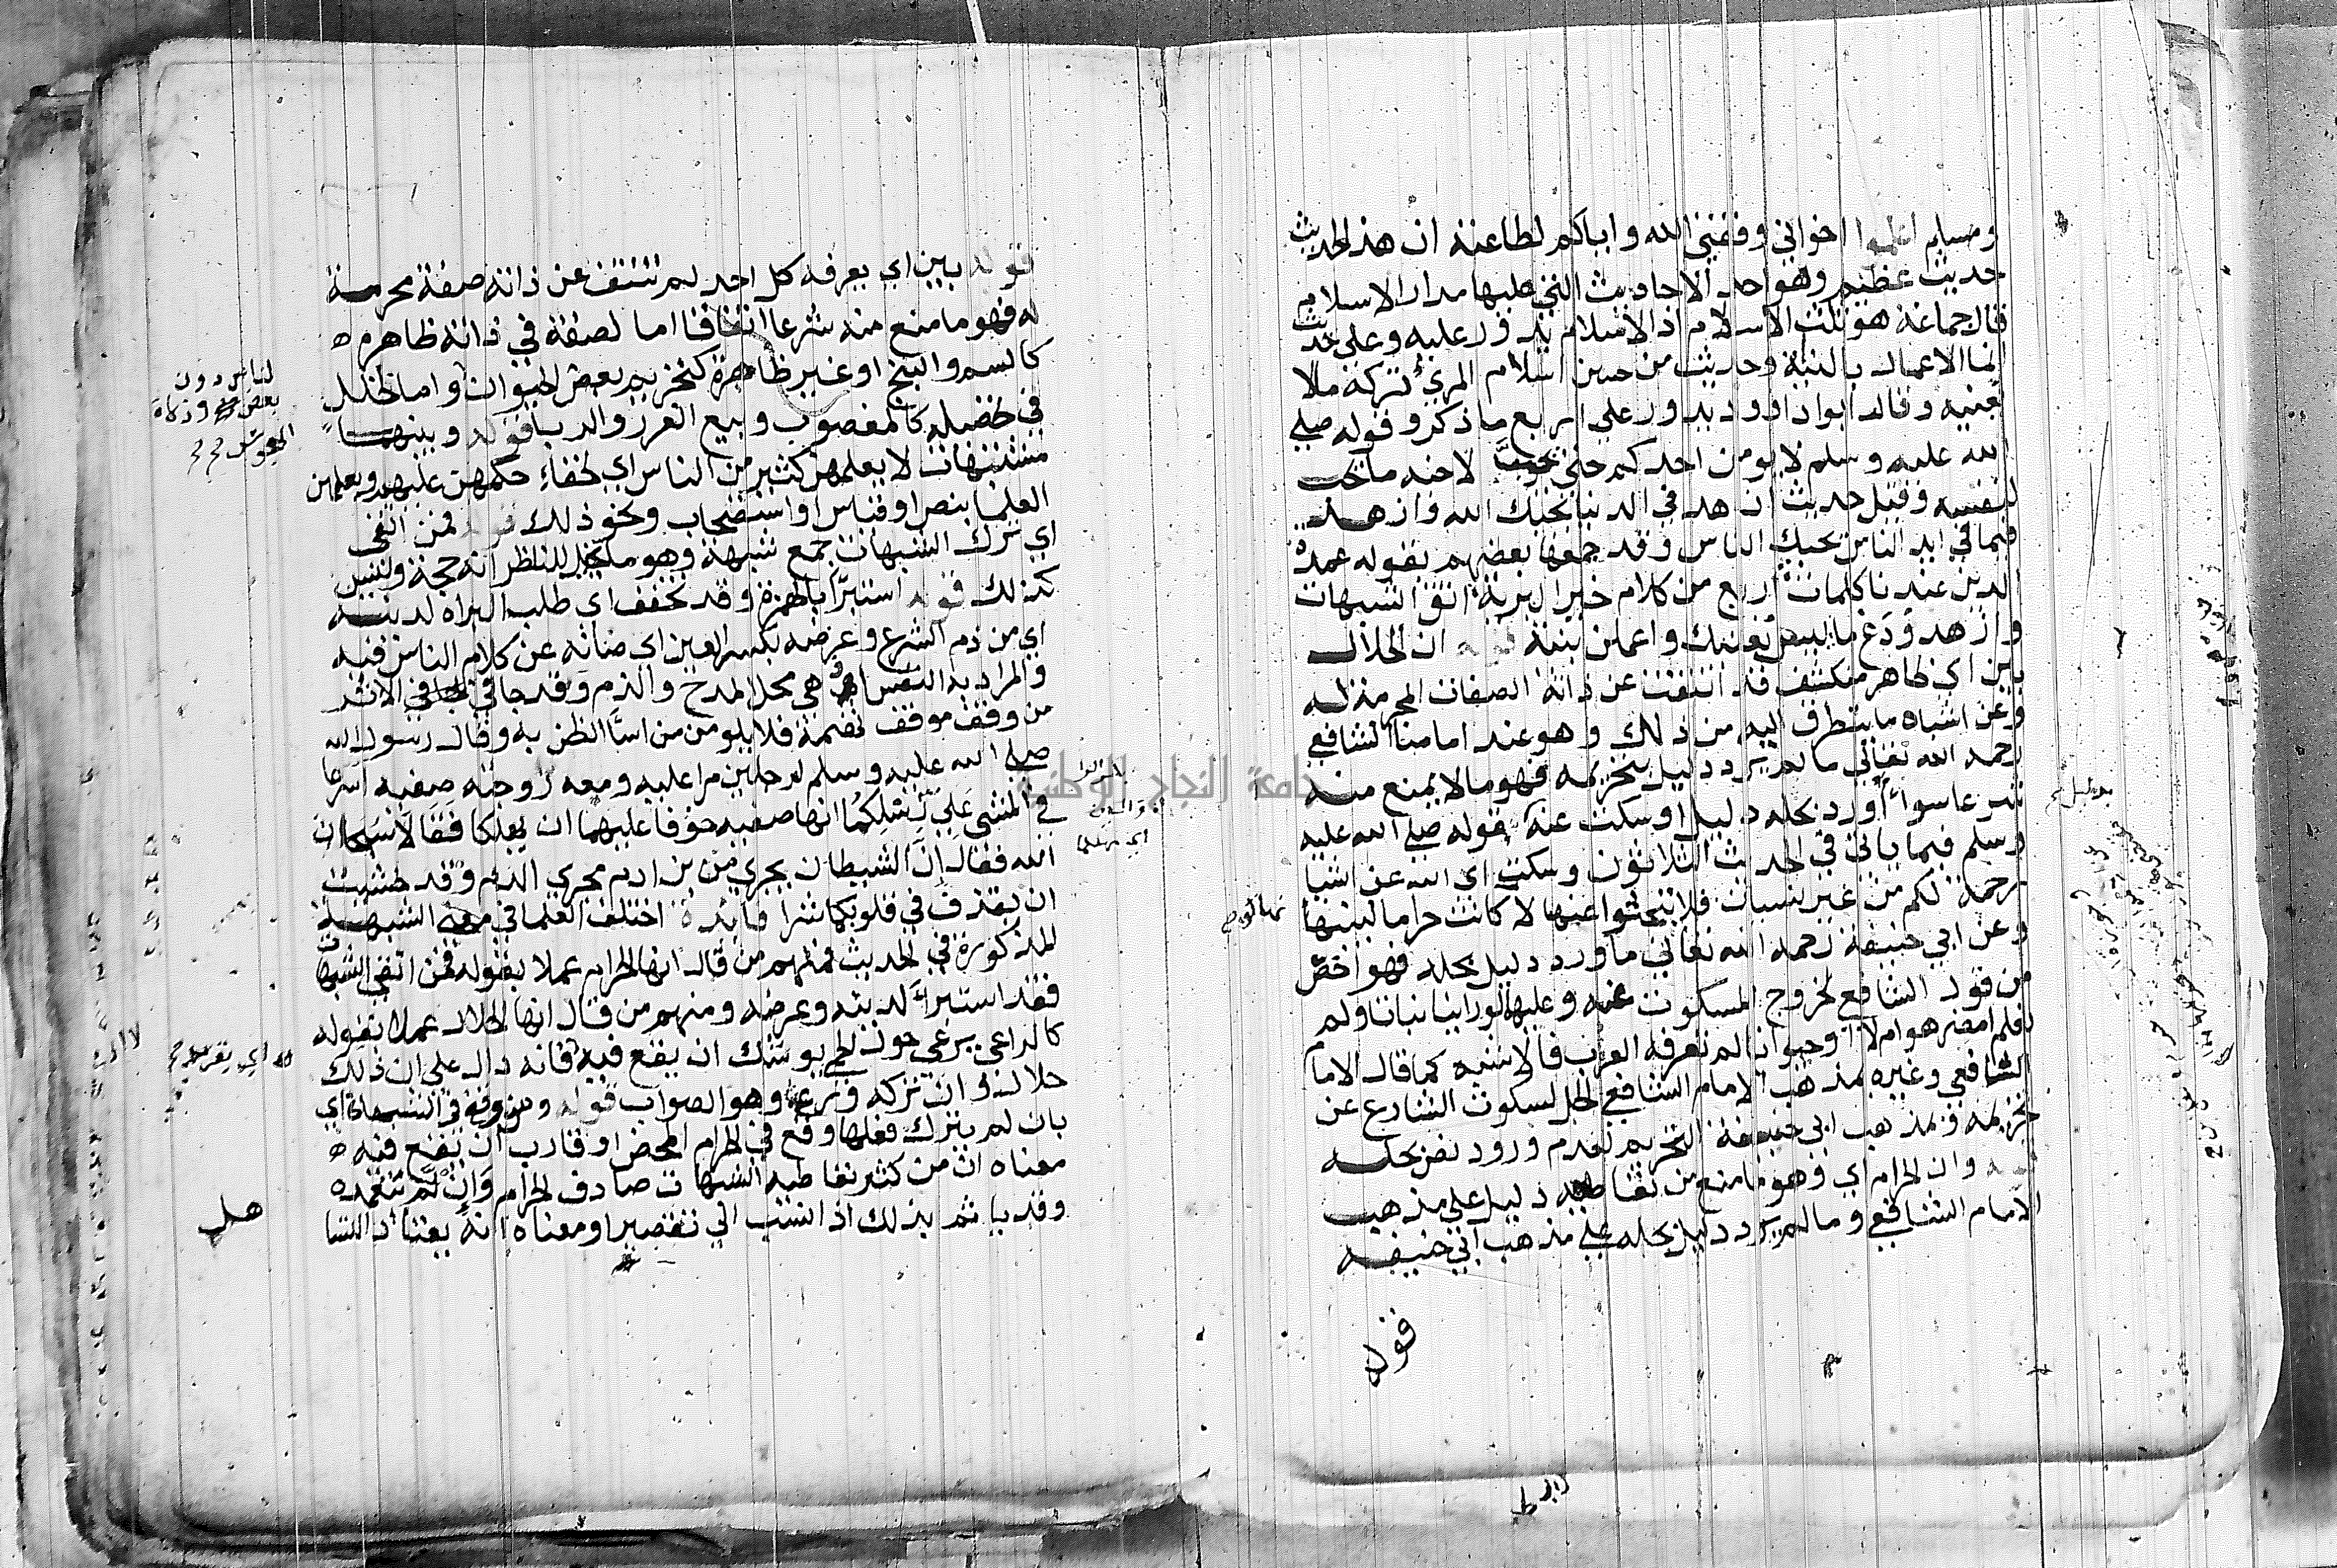 ومسلم اعلموا اخواني وفقني الله واياكم لطاعته ان هذا الحديث
حديث عظيم وهو احد الاحاديث التي عليها مدار الاسلام
قال جماعة هو ثلث الاسلام اذ الاسلام يدور عليه وعلى حديث
انما الاعمال بالنية وحديث من حسن اسلام المرئ تركه ما لا
يعنيه وقال ابوا داوود يدور على اربع ما ذكر وقوله صلى
الله عليه وسلم لا يومن احدكم حتى يحب لاخيه ما يحب
لنفسه وقيل حديث ازهد في الدنيا يحبك الله وازهد
فيما في ايد الناس يحبك الناس وقد جمعها بعضهم بقوله عمدة
الدين عندنا كلمات اربع من كلام خير البرية اتق الشبهات
وازهد ودع ما ليس يعنيك واعملن بنية قوله ان الحلال
بين اي ظاهر منكشف قد انتفت عن ذاته الصفات المحرمة له
وعن اشباه ما يتطرق اليه من ذلك وهو عند امامنا الشافعي
رحمه الله تعالى ما لم يرد دليل بتحريمه فهو ما لا يمنع منه
شرعا سواء أورد بحله دليل او سكت عنه قوله صلى الله عليه
وسلم فيما ياتي في الحديث الثلاثون وسكت اي الله عن اشيا
رحمة لكم من غير نسيات فلا تبحثوا عنها لا كانت حراما لبينها
وعن ابي حنيفة رحمه الله تعالى ما ورد دليل بحله فهو اخص
من قول الشافع لخروج المسكوت عنه وعليها لوراينا نباتا ولم
نعلم امضر هو ام لا اوحيوانا لم تعرفه العرب فالاشبه كما قال الاما
الشافعي وغيره بمذهب الامام الشافعي الحل لسكوت الشارع عن
تحريمه وبمذهب ابي حنيفة التحريم لعدم ورود نص بحله
قوله وان الحرام اي وهو ما منع من تعاطيه دليل على مذهب
الامام الشافعي وما لم يرد دليل بحله على مذهب ابي حنيفه
قوله
قوله بين اي يعرفه كل احد لم تنتف عن ذاته صفة محرمة
له فهو ما منع منه شرعا اتفاقا اما لصفة في ذاته ظاهره
كالسم والبنج او غير ظاهرة كتحريم بعض الحيوان واما لخلل
في تحصيله كالمغصوب وبيع الغرر والربا قوله وبينهما
مشتبهات لا يعلمهن كثير من الناس اي لخفاء حكمهن عليهم ويعلمهن
العلما بنص او قياس او استصحاب ونحو ذلك قوله فمن اتقى
اي ترك الشبهات جمع شبهة وهو ما يخيل للناظر انه حجة وليس
كذلك قوله استبرأ بالهمزة وقد تخفف اي طلب البراه لدينه
اي من ذم الشرع وعرضه بكسر العين اي صانه عن كلام الناس فيه
والمراد به النفس اذ هي محل المدح والذم وقد جا في الاثر
من وقف موقف تهمة فلا يلومن من اسأ الظن به وقال رسول الله
صلى الله عليه وسلم لرجلين مرا عليه ومعه زوجته صفيه اسرعا
في المشي على رسلكما انها صفيه خوفا عليهما ان يهلكا فقالا سبحان
الله فقال ان الشيطان يجري من بن ادم مجرى الدم وقد خشيت
ان يقذف في قلوبكما شرا فايدة اختلف العلما في الشبهة
المذكورة في الحديث فمنهم من قال انها الحرام عملا بقوله فمن اتقى الشبهات
فقد استبرأ لدينه وعرضه ومنهم من قال انها الحلال عملا بقوله
كالراعي يرعى حول الحمى يوشك ان يقع فيه فانه دال على ان ذلك
حلال وان تركه ورع وهو الصواب قوله ومن وقع في الشبهات اي
بان لم يترك فعلها وقع في الحرام المحض او قارب ان يقع فيه
معناه ان من كثر تعاطيه الشبهات صادف الحرام وان لم يتعمده
وقد ياثم بذلك اذا انتسب الى تقصير او معناه انه يعتاد التسا
هل
لناس دون
بعض